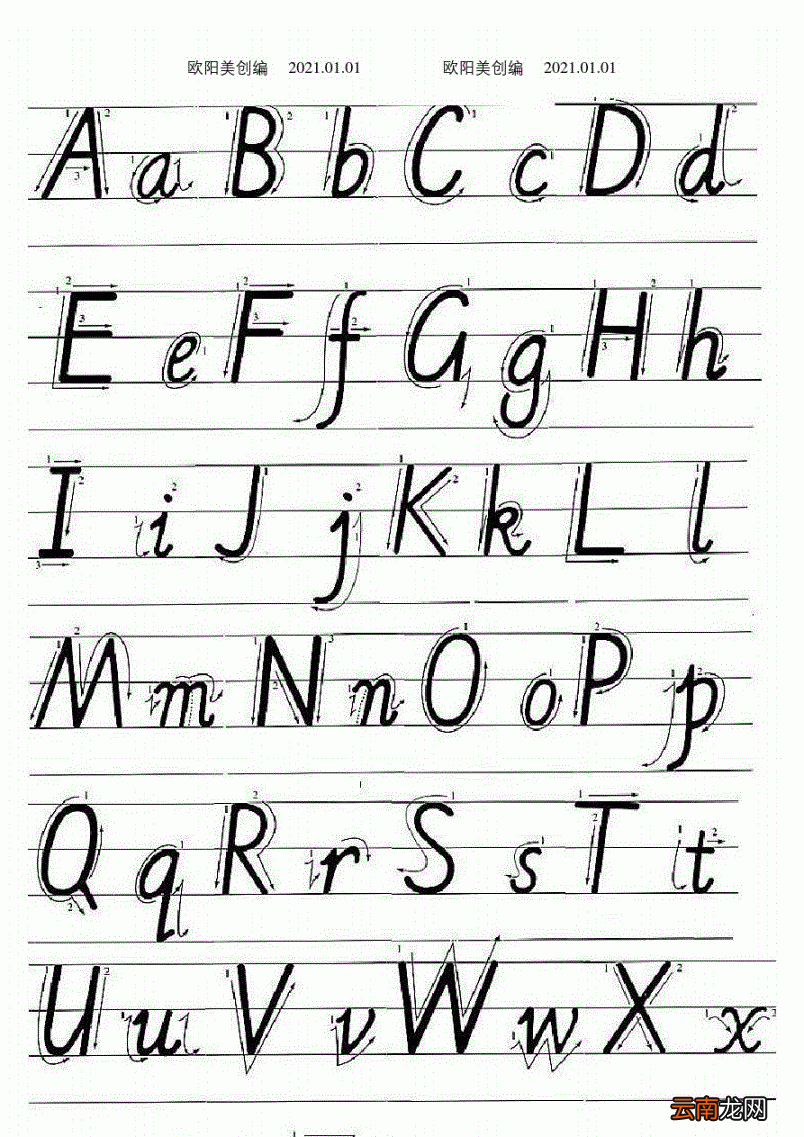 欧阳美创编 2021.01.01 欧阳美创编 2021.01.01
A a B b C c D d
E e F f G g H h
I i J j K k L l
M m N n O o P p
Q q R r S s T t
U u V v W w X x
云南龙网